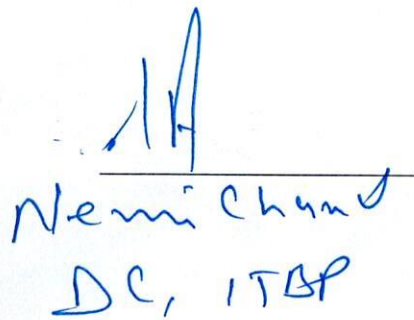 Nemi Chand
DC, ITBP